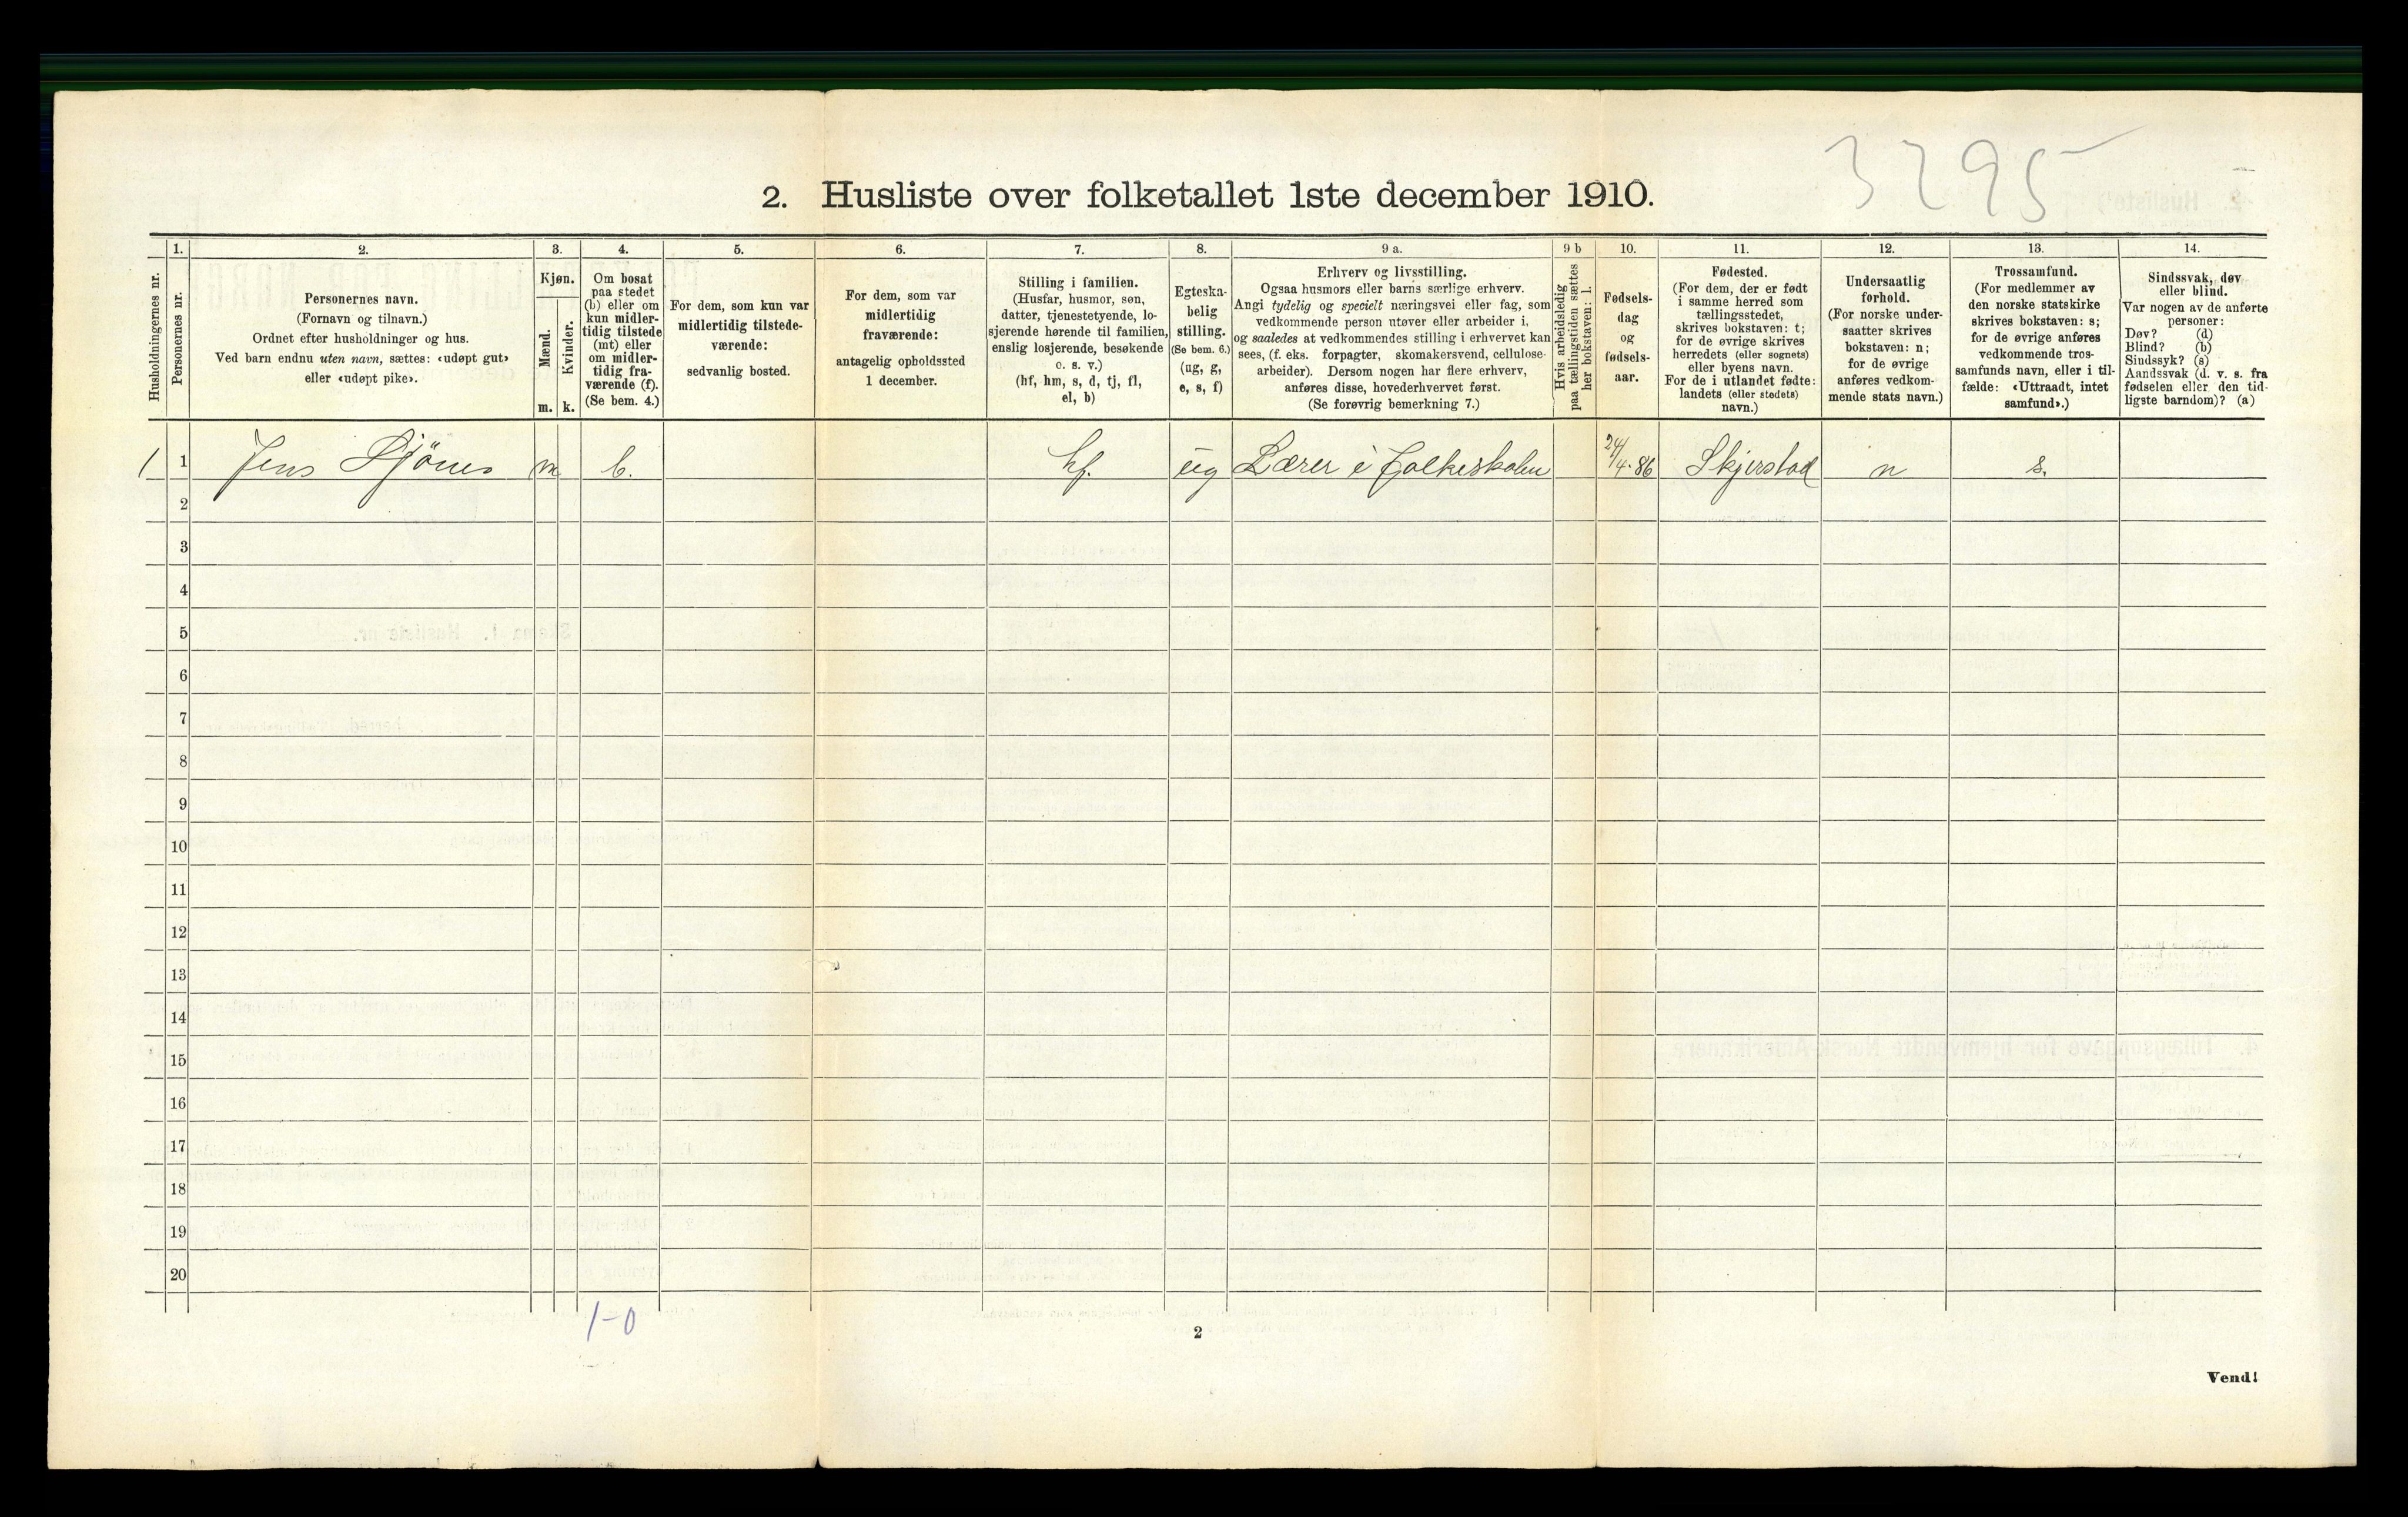 3295
2. Husliste over folketallet 1ste december 1910.
Husholdningernes nr.
1.
Personernes nr.
2.
Personernes navn.
(Fornavn og tilnavn.)
Ordnet efter husholdninger og hus.
Ved barn endnu uten navn, sættes: «udøpt gut»
eller «udøpt pike».
3.
Kjøn.
Mænd.
Kvinder.
m. k.
4.
Om bosat
paa stedet
(b) eller om
kun midler-
tidig tilstede
(mt) eller
om midler-
tidig fra-
værende (f).
(Se bem. 4.)
5.
For dem, som kun var
midlertidig tilstede-
værende:
sedvanlig bosted.
6.
For dem, som var
midlertidig
fraværende:
antagelig opholdssted
1 december.
7.
Stilling i familien.
(Husfar, husmor, søn,
datter, tjenestetyende, lo-
sjerende hørende til familien,
enslig losjerende, besøkende
o. s. v.)
(hf, hm, s, d, tj, fl,
el, b)
8.
Egteska-
belig
stilling.
(Se bem. 6.)
(ug, g,
e, s, f)
9 a.
Erhverv og livsstilling.
Ogsaa husmors eller barns særlige erhverv.
Angi tydelig og specielt næringsvei eller fag, som
vedkommende person utøver eller arbeider i,
og saaledes at vedkommendes stilling i erhvervet kan
sees, (f. eks. forpagter, skomakersvend, cellulose-
arbeider). Dersom nogen har flere erhverv,
anføres disse, hovederhvervet først.
(Se forøvrig bemerkning 7.)
9 b
Hvis arbeidsledig
paa tællingstiden sættes
her bokstaven: l.
10.
Fødsels-
dag
og
fødsels-
aar.
11.
Fødested.
(For dem, der er født
i samme herred som
tællingsstedet,
skrives bokstaven: t;
for de øvrige skrives
herredets (eller sognets)
eller byens navn.
For de i utlandet fødte:
landets (eller stedets)
navn.)
12.
Undersaatlig
forhold.
(For norske under-
saatter skrives
bokstaven: n;
for de øvrige
anføres vedkom-
mende stats navn.)
13.
Trossamfund.
(For medlemmer av
den norske statskirke
skrives bokstaven: s;
for de øvrige anføres
vedkommende tros-
samfunds navn, eller i til-
fælde: «Uttraadt, intet
samfund».)
14.
Sindssvak, døv
eller blind.
Var nogen av de anførte
personer:
Døv? (d)
Blind? (b)
Sindssyk? (s)
Aandssvak (d. v. s. fra
fødselen eller den tid-
ligste barndom)? (a)
1 1 Jens m b. hf. ug Lærer i folkeskolen 24/4.86 Skjerstad n s.
2
3
4
5
6
7
8
9
10
11
12
13
14
15
16
17
18
19
20
1-0
2
Vend!